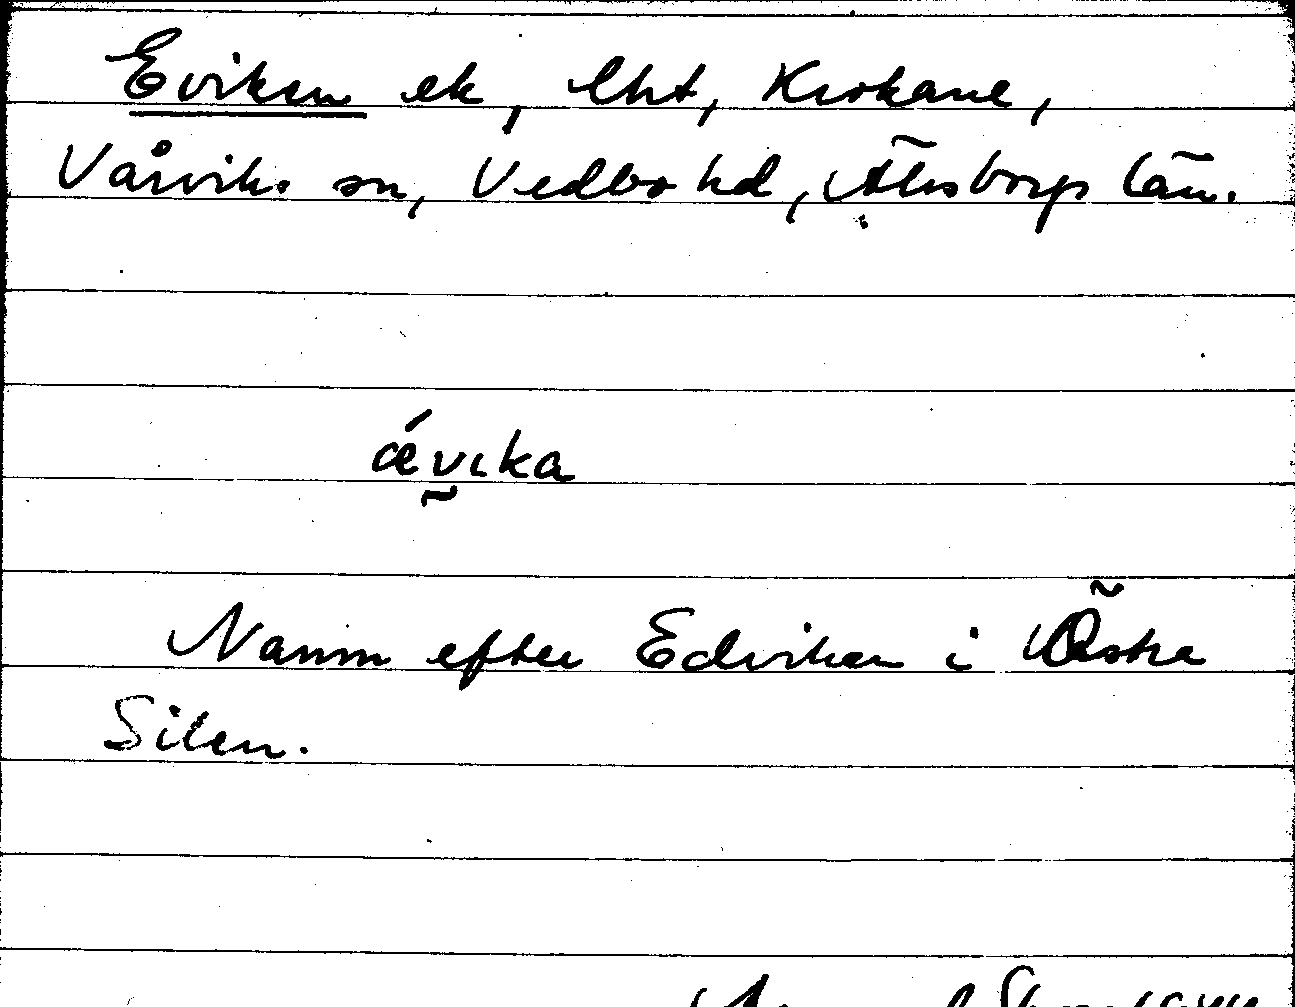 Eviken ek, lht, Krokane,
Vårviks sn, Vedbo hd, Älvsborgs län.
ǽvıka
Namn efter Edviken i Östra
Silen.